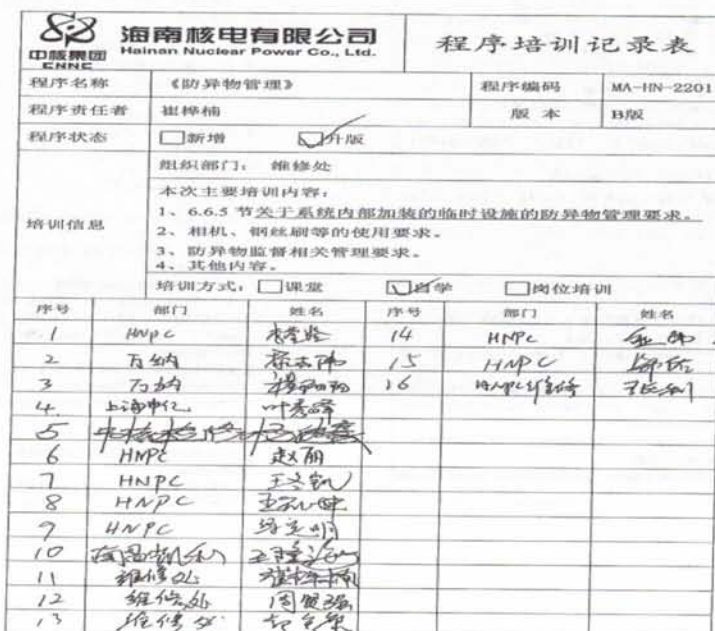 中核集团
CNNC
海南核电有限公司
Hainan Nuclear Power Co., Ltd.
程序培训记录表
程序名称 《防异物管理》 程序编码 MA-HN-2201
程序责任者 崔桦楠 版 本 B版
程序状态 □新增 ☑升版
培训信息
组织部门： 维修处
本次主要培训内容：
1、6.6.5 节关于系统内部加装的临时设施的防异物管理要求。
2、相机、钢丝刷等的使用要求。
3、防异物监督相关管理要求。
4、其他内容。
培训方式： □课堂 ☑自学 □岗位培训
序号 部门 姓名 序号 部门 姓名
1 HNPC 14 HNPC
2 万纳 15 HNPC
3 万纳 16 HNPC维修
4 上海中亿 叶秀峰
5
6 HNPC 赵丽
7 HNPC 王冬凯
8 HNPC
9 HNPC
10
11 维修处 崔桦楠
12 维修处 周贤强
13 维修处